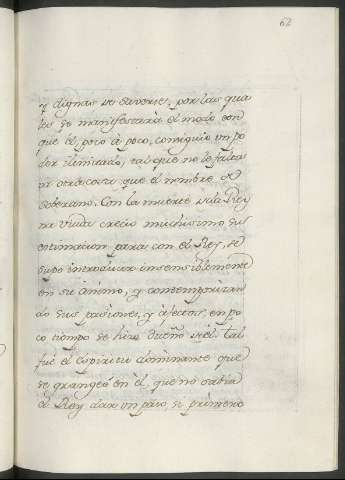 62
y dignas de saverse, por las qua
les se manifestarà el modo con
que èl, poco à poco, consiguio un po
der ilimitado, tal que no le falta
va otra cosa que el nombre de
soberano. Con la muerte de la Rey
na viuda crecio muchisimo su
estimacion para con el Rey, se
supo introducir insensiblemente
en su animo, y contemporizan
do sus pasiones, y afectos, en po
co tiempo se hizo dueño de èl. Tal
fuè el espiritu dominante que
se grangeò en èl, que no sabia
el Rey dar un paso si primero